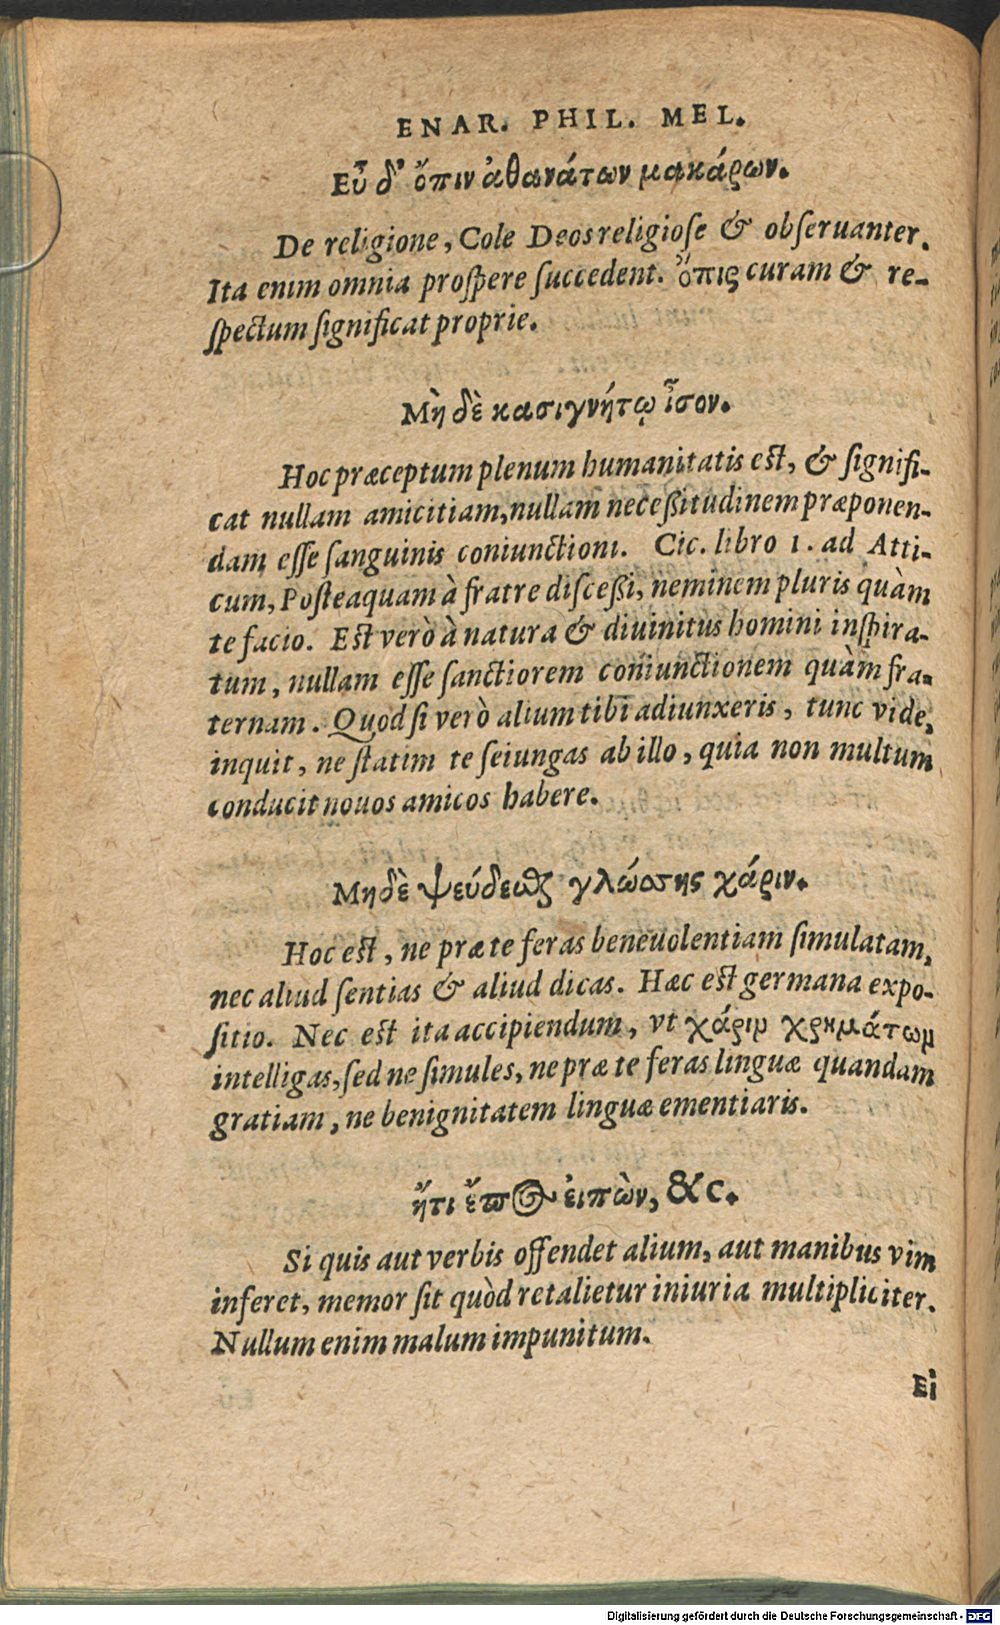 ENAR. PHIL. MEL.
Εὖ δ' ὄπιν ἀθανάτων μακάρων.
De religione, Cole Deos religiose & obſeruanter.
Ita enim omnia proſpere ſuccedent. ὄπις curam & re-
ſpectum ſignificat proprie.
Μὴ δὲ κασιγνήτῳ ἶσον.
Hoc præceptum plenum humanitatis eſt, & ſignifi-
cat nullam amicitiam, nullam neceßitudinem præponen-
dam eſſe ſanguinis coniunctioni. Cic. libro 1. ad Atti-
cum, Poſteaquam à fratre diſceßi, neminem pluris quàm
te facio. Eſt verò à natura & diuinitus homini inſpira-
tum, nullam eſſe ſanctiorem coniunctionem quàm fra-
ternam. Quod ſi verò alium tibi adiunxeris, tunc vide,
inquit, ne ſtatim te ſeiungas ab illo, quia non multum
conducit nouos amicos habere.
Μηδὲ ψεύδεωζ γλώσσης χάριν.
Hoc eſt, ne præ te feras beneuolentiam ſimulatam,
nec aliud ſentias & aliud dicas. Hæc eſt germana expo-
ſitio. Nec eſt ita accipiendum, vt χάριμ χρημάτωμ
intelligas, ſed ne ſimules, ne præ te feras linguæ quandam
gratiam, ne benignitatem linguæ ementiaris.
ἤτι ἔπος ἐιπὼν, &c.
Si quis aut verbis offendet alium, aut manibus vim
inferet, memor ſit quòd retalietur iniuria multipliciter.
Nullum enim malum impunitum.
Εἰ
Digitalisierung gefördert durch die Deutsche Forschungsgemeinschaft - DFG